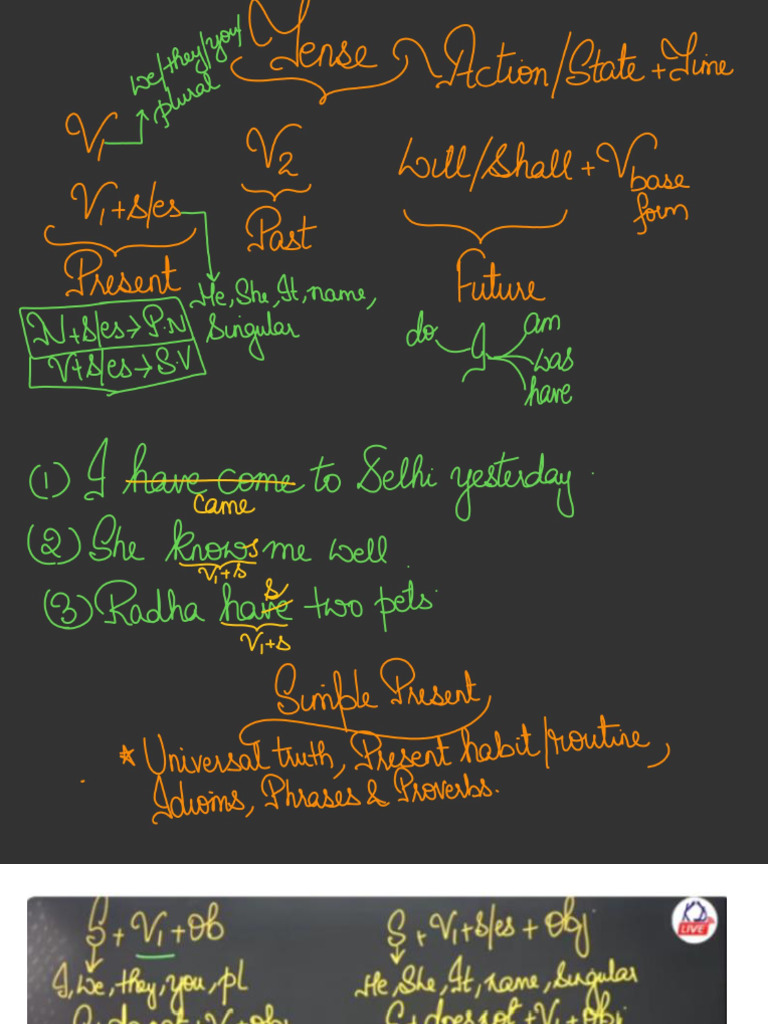 Tense → Action/State + Time
we/they/you/
plural
V1
V2
will/shall + V base
form
V1+s/es
Past
Present
Future
He, She, It, name,
Singular
N+s/es→P.N
V+s/es→S.V
do I am
was
have
(1) I have come to Delhi yesterday.
came
(2) She knows me well
V1+s
(3) Radha have two pets.
s
V1+s
Simple Present
* Universal truth, Present habit/routine,
Idioms, Phrases & Proverbs.
S + V1 + Ob
S + V1+s/es + Obj
I, we, they, you, pl
He, She, It, name, Singular
S + does not + V1 + Obj
KD
LIVE